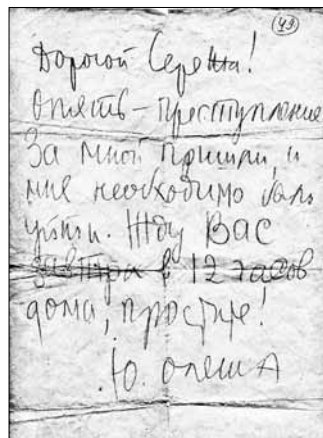 49
Дорогой Сережа!
Опять – преступление
За мной пришли, и
мне необходимо было
уйти. Жду Вас
завтра в 12 часов
дома, простите!
Ю. Олеша